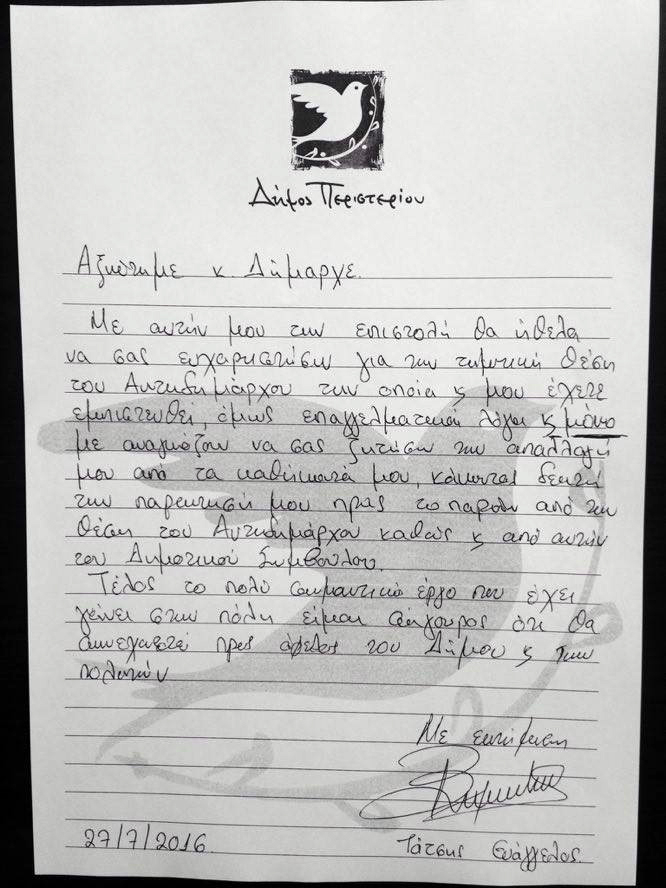 Δήμος Περιστερίου
Αξιότιμε κ. Δήμαρχε.
Με αυτήν μου την επιστολή θα ήθελα
να σας ευχαριστήσω για την τιμητική θέση
του Αντιδημάρχου την οποία ς μου έχετε
εμπιστευθεί, όμως επαγγελματικοί λόγοι ς μόνο
με αναγκάζουν να σας ζητήσω την απαλλαγή
μου από τα καθήκοντά μου, κάνοντας δεκτή
την παραίτησή μου προς το παρόν από την
θέση του Αντιδημάρχου καθώς ς από αυτήν
του Δημοτικού Συμβούλου.
Τέλος το πολύ σημαντικό έργο που έχει
γίνει στην πόλη είμαι σίγουρος ότι θα
συνεχιστεί προς όφελος του Δήμου ς των
πολιτών
Με εκτίμηση
27/7/2016.
Τάτσης Ευάγγελος.